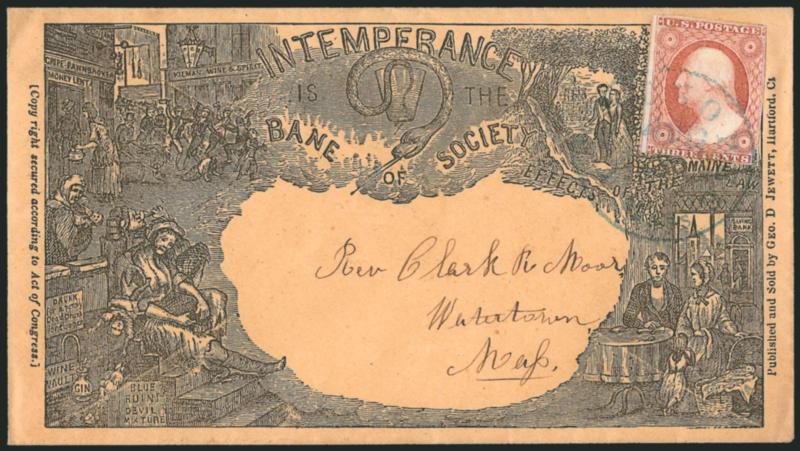 INTEMPERANCE
IS THE
BANE OF SOCIETY
EFFECTS OF THE MAINE LAW
U.S. POSTAGE
THREE CENTS
MONEY LENT
WINE & SPIRIT
SAVING BANK
DRUNK
WINE VAULT
GIN
BLUE
RUIN!
DEVIL
MIXTURE
Rev Clark R Moor
Watertown
Mass.
[Copy right secured according to Act of Congress.]
Published and Sold by GEO. D JEWETT, Hartford, Ct